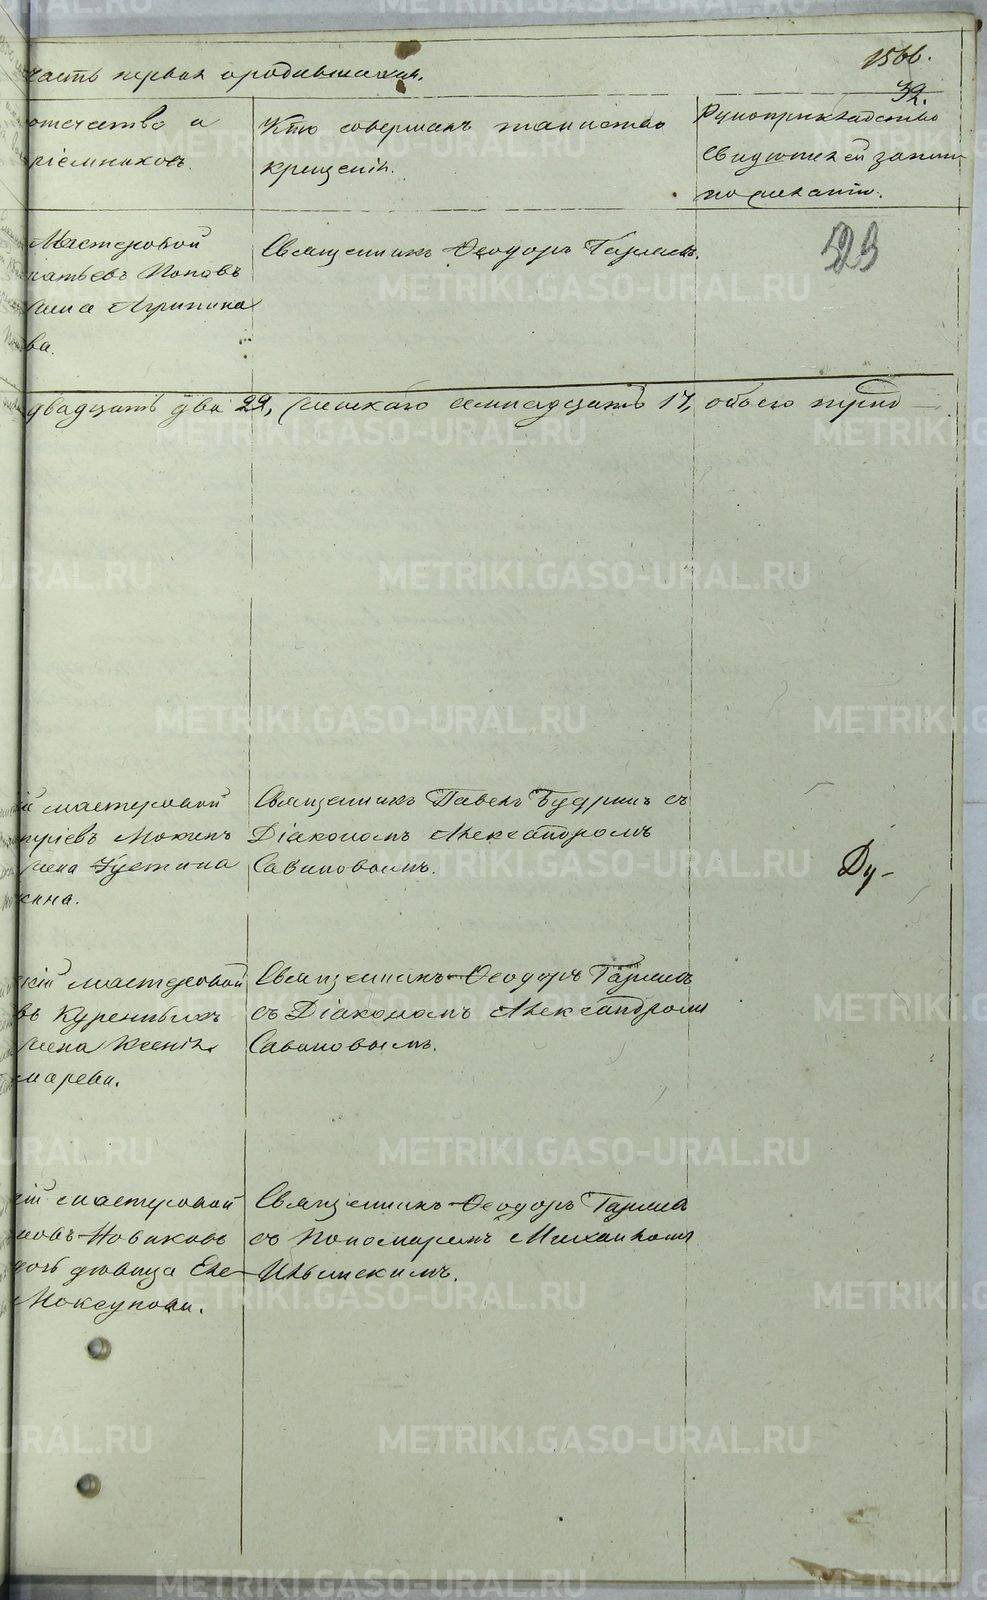 часть первая о родившихся.
1566.
32.
отечество и
ріемниковъ.
Кто совершалъ таинство
крещенія.
Рукоприкладство
свидетелей записи
по желанію.
Мастеровой
натьевъ Поповъ
Агрипина
ва.
Священникъ Ѳеодоръ
523
двадцать два 22, женскаго семнадцать 17, обоего
й мастеровой
Мокинъ
жена Устина
кина.
Священникъ Павелъ Будринъ съ
Діакономъ Александромъ
Савиновымъ.
Ду-
кій мастеровой
въ Куренныхъ
жена Ксенія
марева.
Священникъ Ѳеодоръ
съ Діакономъ Александромъ
Савиновымъ.
кій мастеровой
новъ Новиковъ
дочь девица Еле
Моксунова.
Священникъ Ѳеодоръ
съ Пономаремъ Михаиломъ
Ильинскимъ.
METRIKI.GASO-URAL.RU